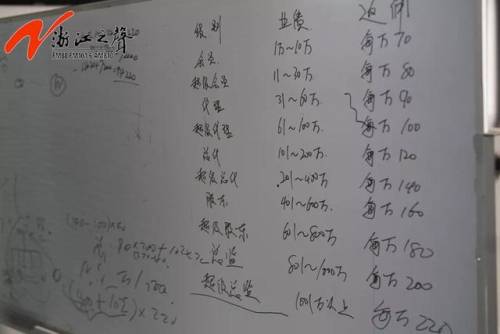 浙江之声
FM88 FM101.6 AM810
级别 业绩 返利
会员 1万~10万 每万70
超级会员 11~30万 每万80
代理 31~60万 每万90
超级代理 61~100万 每万100
总代 101~200万 每万120
超级总代 201~400万 每万140
股东 401~600万 每万160
超级股东 601~800万 每万180
总监 801~1000万 每万200
超级总监 1001万以上 每万220